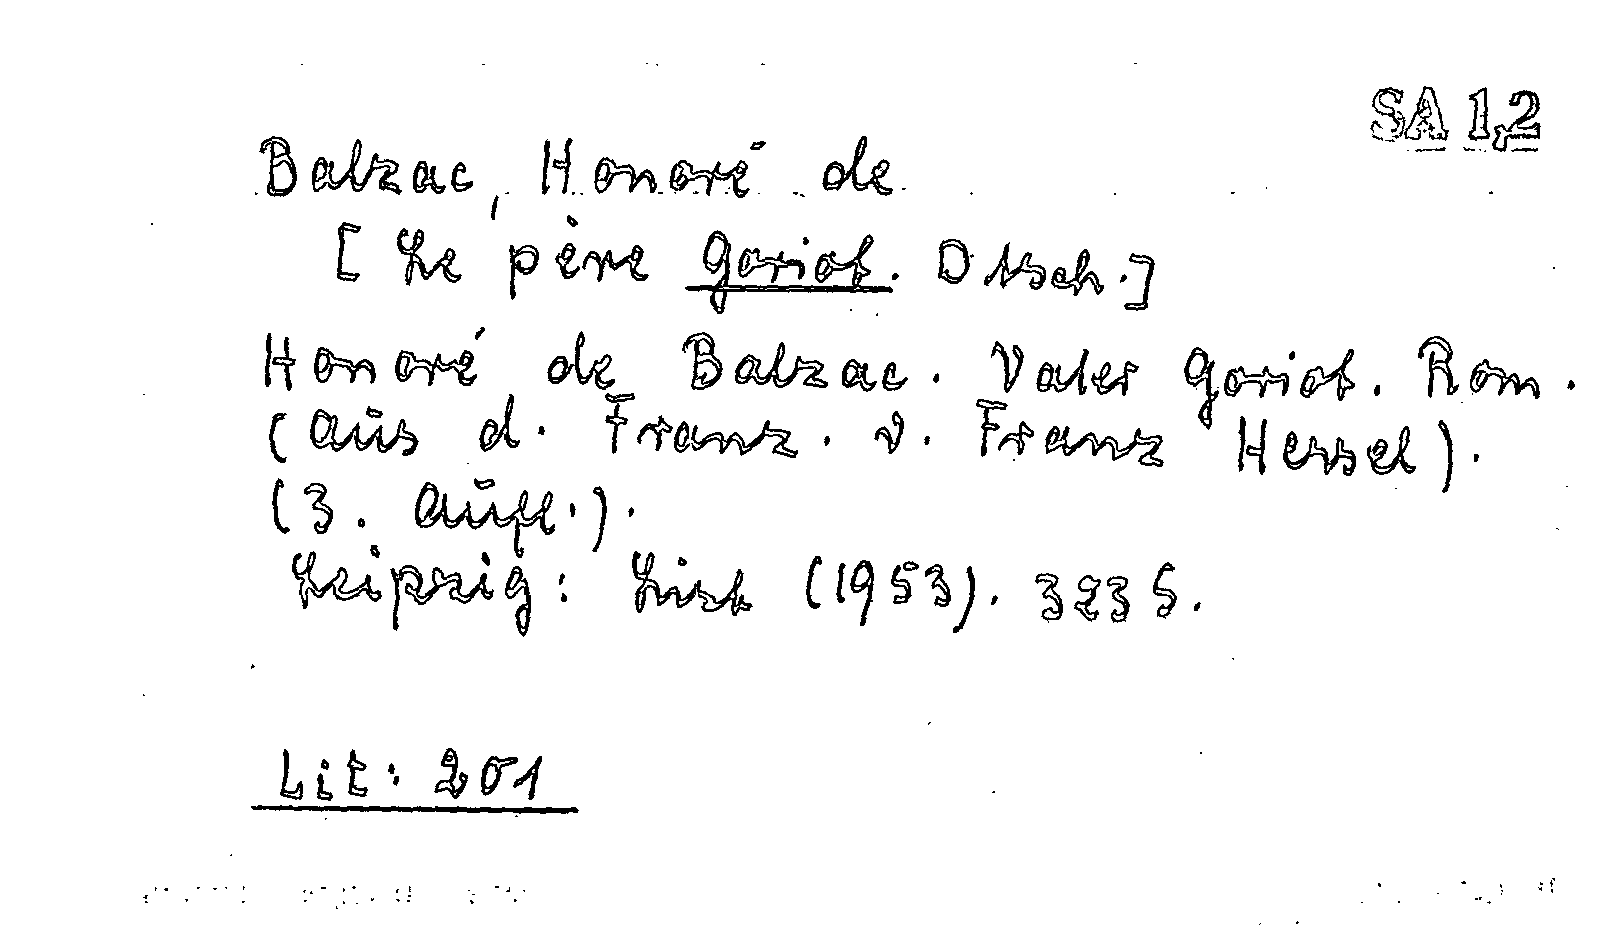 SA 1,2
Balzac, Honoré de
[Le père Goriot. Dtsch.]
Honoré de Balzac. Vater Goriot. Rom.
(Aus d. Franz. v. Franz Hessel).
(3. Aufl.).
Leipzig: List (1953). 323 S.
Lit: 201